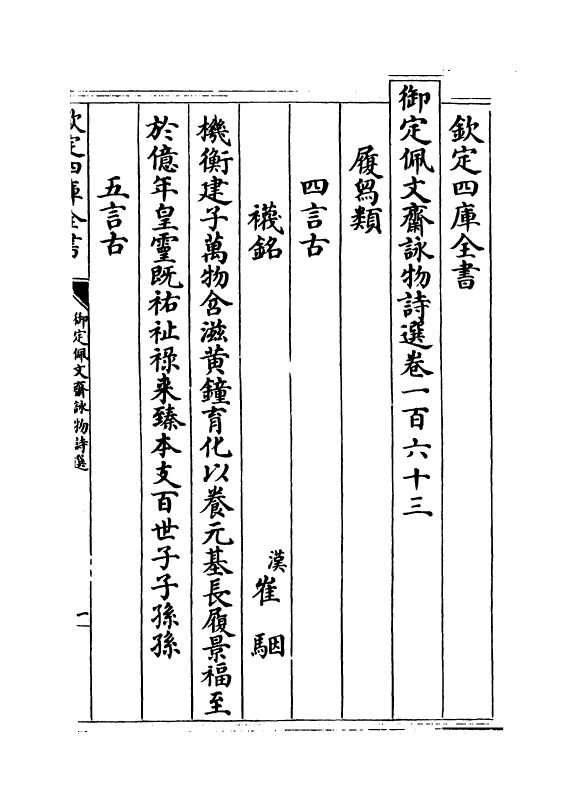 欽定四庫全書
御定佩文齋詠物詩選卷一百六十三
履舄類
四言古
襪銘
漢崔駰
機衡建子萬物含滋黄鐘育化以養元基長履景福至
於億年皇靈既祐祉祿来臻本支百世子子孫孫
五言古
欽定四庫全書
御定佩文齋詠物詩選
一